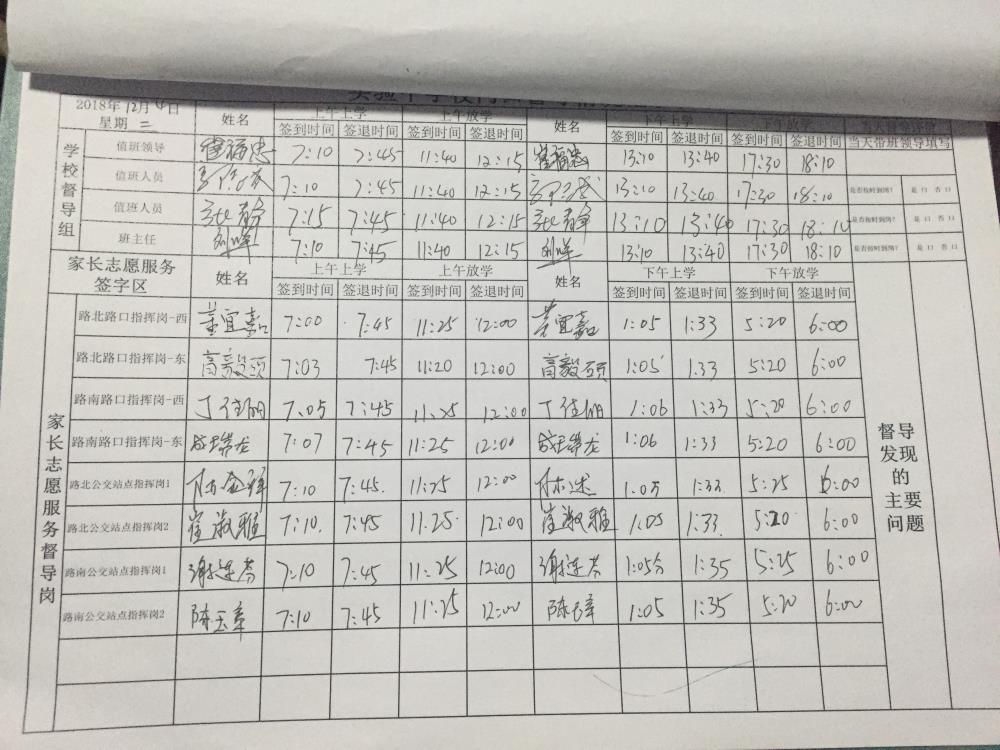 2018年12月4日
星期 二
姓名 上午上学 上午放学 姓名 下午上学 下午放学
签到时间 签退时间 签到时间 签退时间 签到时间 签退时间 签到时间 签退时间 当天带班领导填写
学校督导组
值班领导 崔福忠 7:10 7:45 11:40 12:15 崔福忠 13:10 13:40 17:30 18:10
值班人员 7:10 7:45 11:40 12:15 13:10 13:40 17:30 18:10 是否按时到岗? 是 口 否 口
值班人员 张静 7:15 7:45 11:40 12:15 张静 13:10 13:40 17:30 18:10 是否按时到岗? 是 口 否 口
班主任 7:10 7:45 11:40 12:15 13:10 13:40 17:30 18:10 是否按时到岗? 是 口 否 口
家长志愿服务签字区 姓名 上午上学 上午放学 姓名 下午上学 下午放学
签到时间 签退时间 签到时间 签退时间 签到时间 签退时间 签到时间 签退时间
家长志愿服务督导岗
路北路口指挥岗-西 董宜嘉 7:00 7:45 11:25 12:00 董宜嘉 1:05 1:33 5:20 6:00
路北路口指挥岗-东 高毅硕 7:03 7:45 11:20 12:00 高毅硕 1:05 1:33 5:20 6:00
路南路口指挥岗-西 7:05 7:45 11:25 12:00 1:06 1:33 5:20 6:00
路南路口指挥岗-东 7:07 7:45 11:25 12:00 1:06 1:33 5:20 6:00
路北公交站点指挥岗1 7:10 7:45 11:25 12:00 1:05 1:33 5:25 6:00
路北公交站点指挥岗2 崔淑雅 7:10 7:45 11:25 12:00 崔淑雅 1:05 1:33 5:20 6:00
路南公交站点指挥岗1 谢连芬 7:10 7:45 11:25 12:00 谢连芬 1:05分 1:35 5:25 6:00
路南公交站点指挥岗2 陈玉章 7:10 7:45 11:25 12:00 陈玉章 1:05 1:35 5:20 6:00
督导发现的主要问题